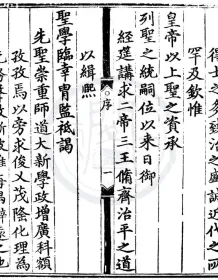 得士之之盛誠近代之所
罕及欽惟
皇帝以上聖之資承
列聖之統嗣位以來日御
經筵講求二帝三王脩齊治平之道
序 一
以緝熙
聖學臨幸胄監祗謁
先聖崇重師道大新學政增廣科額
孜孜焉以旁求俊乂茂隆化理為